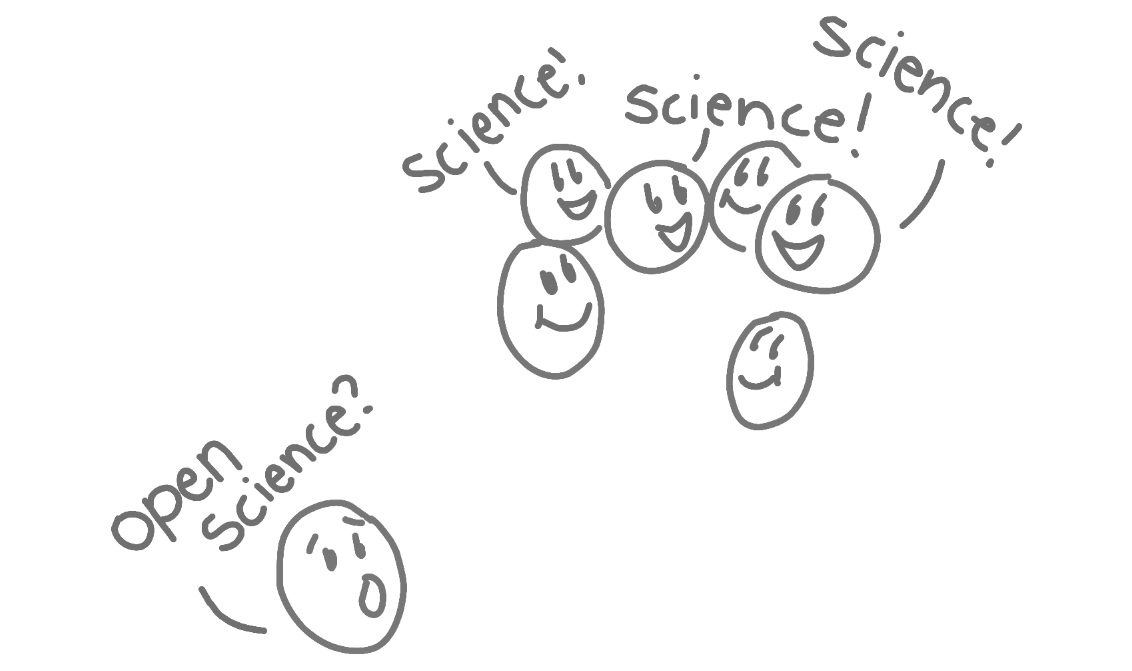 Science!
Science!
Science!
open
science?